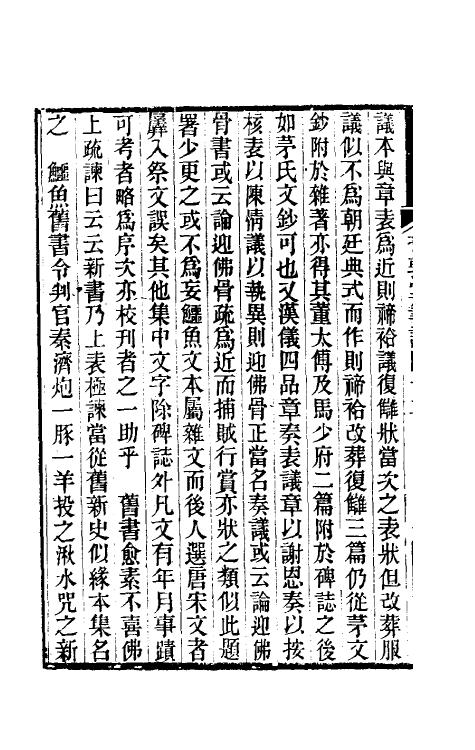 議本與章表爲近則禘祫議復讎狀當次之表狀但改葬服
議似不爲朝廷典式而作則禘祫改葬復讎三篇仍從茅文
鈔附於雜著亦得其董太傅及馬少府二篇附於碑誌之後
如茅氏文鈔可也又漢儀四品章奏表議章以謝恩奏以按
核表以陳情議以執異則迎佛骨正當名奏議或云論迎佛
骨書或云論迎佛骨疏爲近而捕賊行賞亦狀之類似此題
署少更之或不爲妄鱷魚文本屬雜文而後人選唐宋文者
羼入祭文誤矣其他集中文字除碑誌外凡文有年月事蹟
可考者略爲序次亦校刊者之一助乎　舊書愈素不喜佛
上疏諫曰云云新書乃上表極諫當從舊新史似緣本集名
之　鱷魚舊書令判官秦濟炮一豚一羊投之湫水咒之新